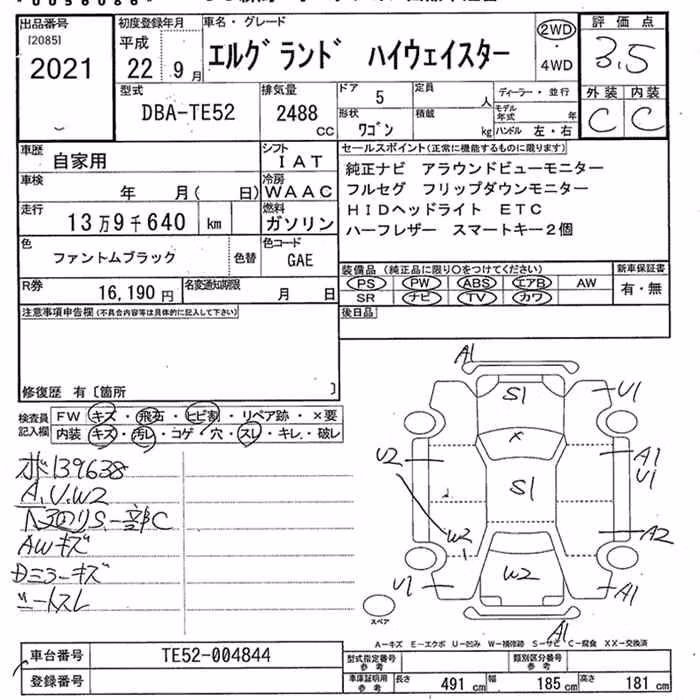 出品番号
[2085]
2021
初度登録年月
平成
22 9月
車名・グレード
エルグランド ハイウェイスター
2WD
・
4WD
評価点
3.5
外装 内装
C C
型式
DBA-TE52
排気量
2488
CC
ドア 5
定員 人
ディーラー・並行
形状
ワゴン
積載 kg
モデル年式 年
ハンドル 左・右
車歴
自家用
シフト
IAT
車検 年 月( 日)
冷房
WAAC
走行
13万9千640 km
燃料
ガソリン
色
ファントムブラック
色替
色コード
GAE
R券
16,190円
名変通知期限
月 日
セールスポイント(正常に機能するものに限ります)
純正ナビ アラウンドビューモニター
フルセグ フリップダウンモニター
HIDヘッドライト ETC
ハーフレザー スマートキー2個
装備品(純正品に限り○をつけてください)
PS PW ABS エアB AW
SR ナビ TV カワ
新車保証書
有・無
後日品
注意事項申告欄(不具合内容等は具体的に記入して下さい)
修復歴 有〔箇所 〕
検査員
記入欄
FW キズ・飛石・ヒビ割・リペア跡・×要
内装 キズ・汚レ・コゲ・穴・スレ・キレ・破レ
ボ139638
A.U.W2
下回りS.一部C
AWキズ
Dミラーキズ
シートスレ
A1
S1
U1
X
U2
A1
U1
S1
W2
A2
W2
U1
A1
A1
スペア
A-キズ E-エクボ U-凹み W-補修跡 S-サビ C-腐食 XX-交換済
車台番号
TE52-004844
登録番号
型式指定番号
参考
類別区分番号
参考
車庫証明用
参考
長さ 491 cm
幅 185 cm
高さ 181 cm